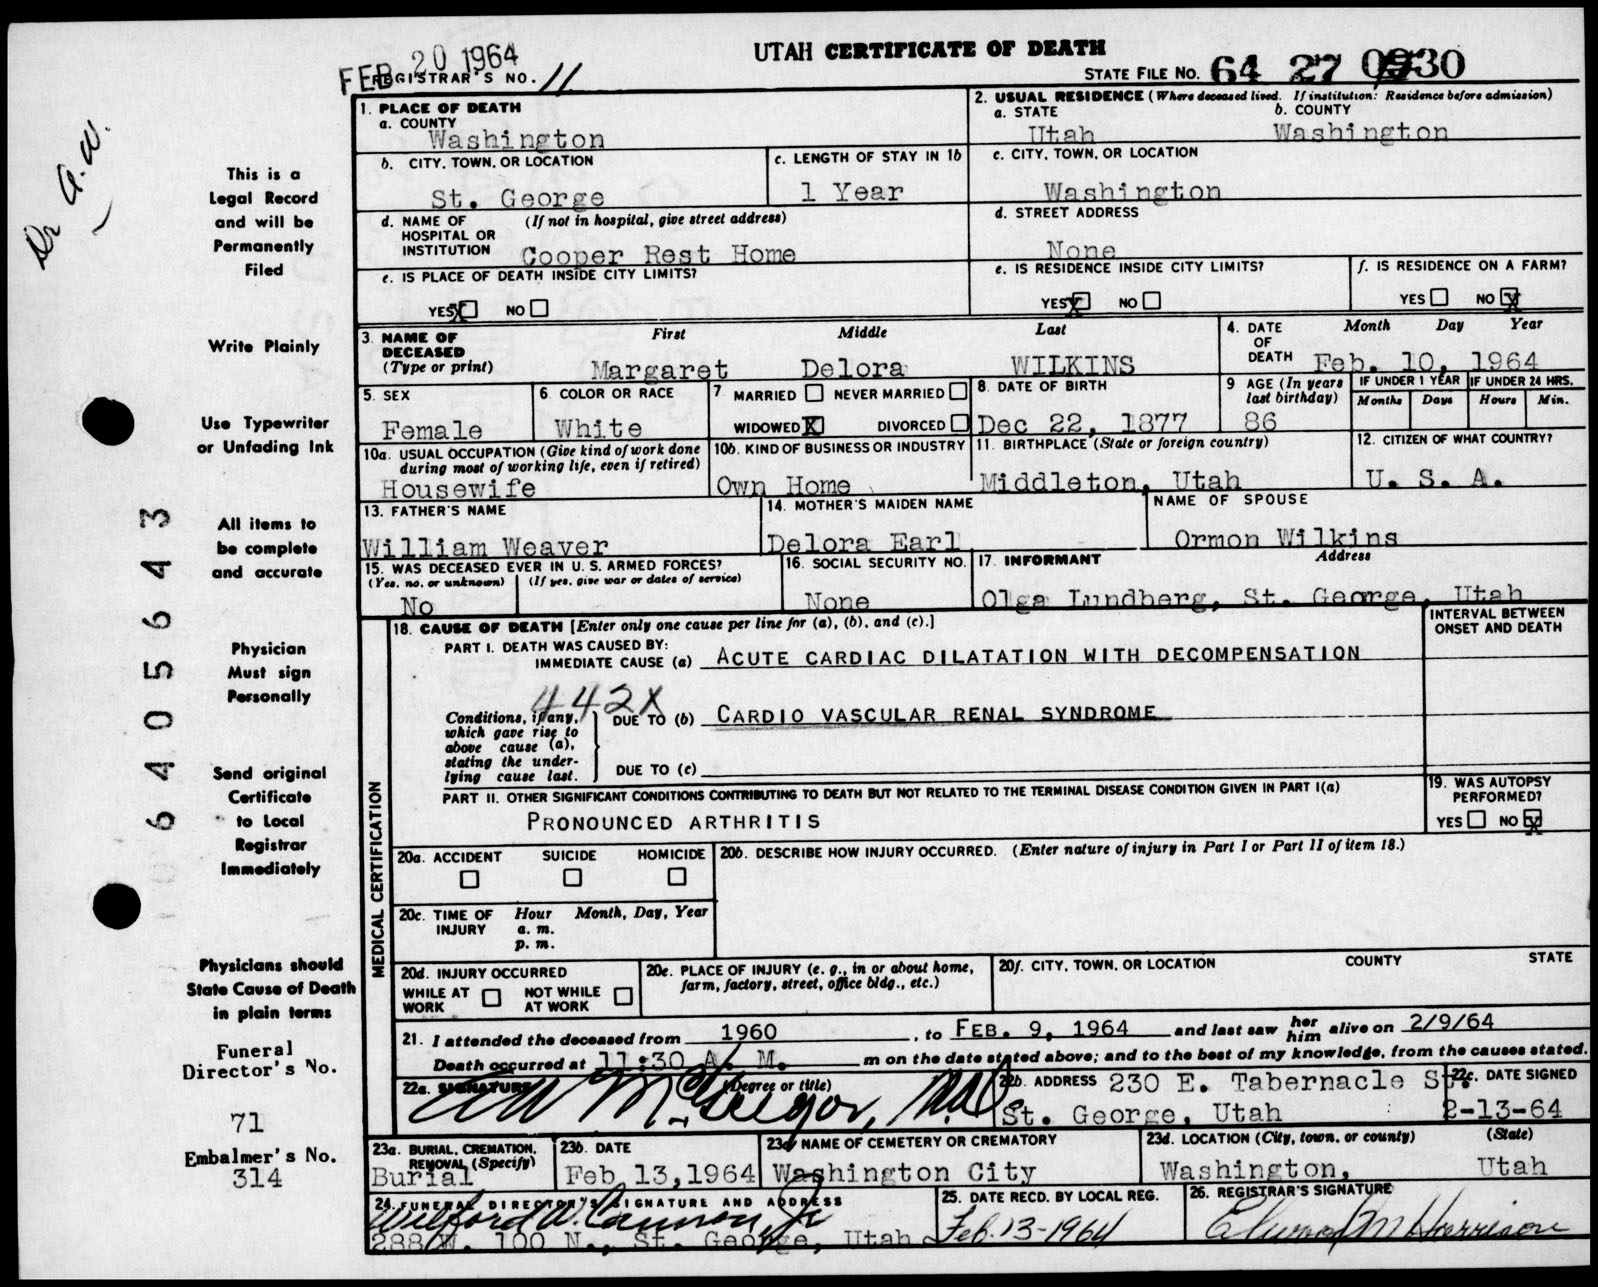 FEB 20 1964
UTAH CERTIFICATE OF DEATH
REGISTRAR'S NO. 11
STATE FILE NO. 64 27 0930
Dr A.W.
This is a
Legal Record
and will be
Permanently
Filed
Write Plainly
Use Typewriter
or Unfading Ink
All items to
be complete
and accurate
Physician
Must sign
Personally
Send original
Certificate
to Local
Registrar
Immediately
Physicians should
State Cause of Death
in plain terms
Funeral
Director's No.
71
Embalmer's No.
314
6405643
1. PLACE OF DEATH
a. COUNTY
Washington
2. USUAL RESIDENCE (Where deceased lived. If institution; Residence before admission)
a. STATE b. COUNTY
Utah Washington
b. CITY, TOWN, OR LOCATION
St. George
c. LENGTH OF STAY IN 1b
1 Year
c. CITY, TOWN, OR LOCATION
Washington
d. NAME OF (If not in hospital, give street address)
HOSPITAL OR
INSTITUTION Cooper Rest Home
d. STREET ADDRESS
None
e. IS PLACE OF DEATH INSIDE CITY LIMITS?
YES X NO
e. IS RESIDENCE INSIDE CITY LIMITS?
YES X NO
f. IS RESIDENCE ON A FARM?
YES NO X
3. NAME OF First Middle Last
DECEASED
(Type or print) Margaret Delora WILKINS
4. DATE Month Day Year
OF
DEATH Feb. 10, 1964
5. SEX
Female
6 COLOR OR RACE
White
7 MARRIED NEVER MARRIED
WIDOWED X DIVORCED
8. DATE OF BIRTH
Dec 22, 1877
9 AGE (In years
last birthday)
86
IF UNDER 1 YEAR IF UNDER 24 HRS.
Months Days Hours Min.
10a. USUAL OCCUPATION (Give kind of work done
during most of working life, even if retired)
Housewife
10b. KIND OF BUSINESS OR INDUSTRY
Own Home
11. BIRTHPLACE (State or foreign country)
Middleton, Utah
12. CITIZEN OF WHAT COUNTRY?
U. S. A.
13. FATHER'S NAME
William Weaver
14. MOTHER'S MAIDEN NAME
Delora Earl
NAME OF SPOUSE
Ormon Wilkins
15. WAS DECEASED EVER IN U. S. ARMED FORCES?
(Yes, no. or unknown) (If yes, give war or dates of service)
No
16. SOCIAL SECURITY NO.
None
17. INFORMANT Address
Olga Lundberg, St. George, Utah
MEDICAL CERTIFICATION
18. CAUSE OF DEATH [Enter only one cause per line for (a), (b), and (c).]
INTERVAL BETWEEN
ONSET AND DEATH
PART I. DEATH WAS CAUSED BY:
IMMEDIATE CAUSE (a) ACUTE CARDIAC DILATATION WITH DECOMPENSATION
442X
Conditions, if any,
which gave rise to
above cause (a),
stating the under-
lying cause last.
DUE TO (b) CARDIO VASCULAR RENAL SYNDROME
DUE TO (c)
PART II. OTHER SIGNIFICANT CONDITIONS CONTRIBUTING TO DEATH BUT NOT RELATED TO THE TERMINAL DISEASE CONDITION GIVEN IN PART I(a)
PRONOUNCED ARTHRITIS
19. WAS AUTOPSY
PERFORMED?
YES NO X
20a. ACCIDENT SUICIDE HOMICIDE
20b. DESCRIBE HOW INJURY OCCURRED. (Enter nature of injury in Part I or Part II of item 18.)
20c. TIME OF Hour Month, Day, Year
INJURY a. m.
p. m.
20d. INJURY OCCURRED
WHILE AT NOT WHILE
WORK AT WORK
20e. PLACE OF INJURY (e. g., in or about home,
farm, factory, street, office bldg., etc.)
20f. CITY, TOWN, OR LOCATION COUNTY STATE
21. I attended the deceased from 1960, to FEB. 9, 1964 and last saw her him alive on 2/9/64
Death occurred at 11:30 A. M. m on the date stated above; and to the best of my knowledge, from the causes stated.
22a. SIGNATURE (Degree or title)
AW McGregor, M.D.
22b. ADDRESS 230 E. Tabernacle St.
St. George, Utah
22c. DATE SIGNED
2-13-64
23a. BURIAL, CREMATION,
REMOVAL (Specify)
Burial
23b. DATE
Feb 13,1964
23c. NAME OF CEMETERY OR CREMATORY
Washington City
23d. LOCATION (City, town, or county) (State)
Washington, Utah
24. FUNERAL DIRECTOR'S SIGNATURE AND ADDRESS
Wilford W. Cannon, Jr
288 W. 100 N., St. George, Utah
25. DATE RECD. BY LOCAL REG.
Feb. 13-1964
26. REGISTRAR'S SIGNATURE
M Harrison